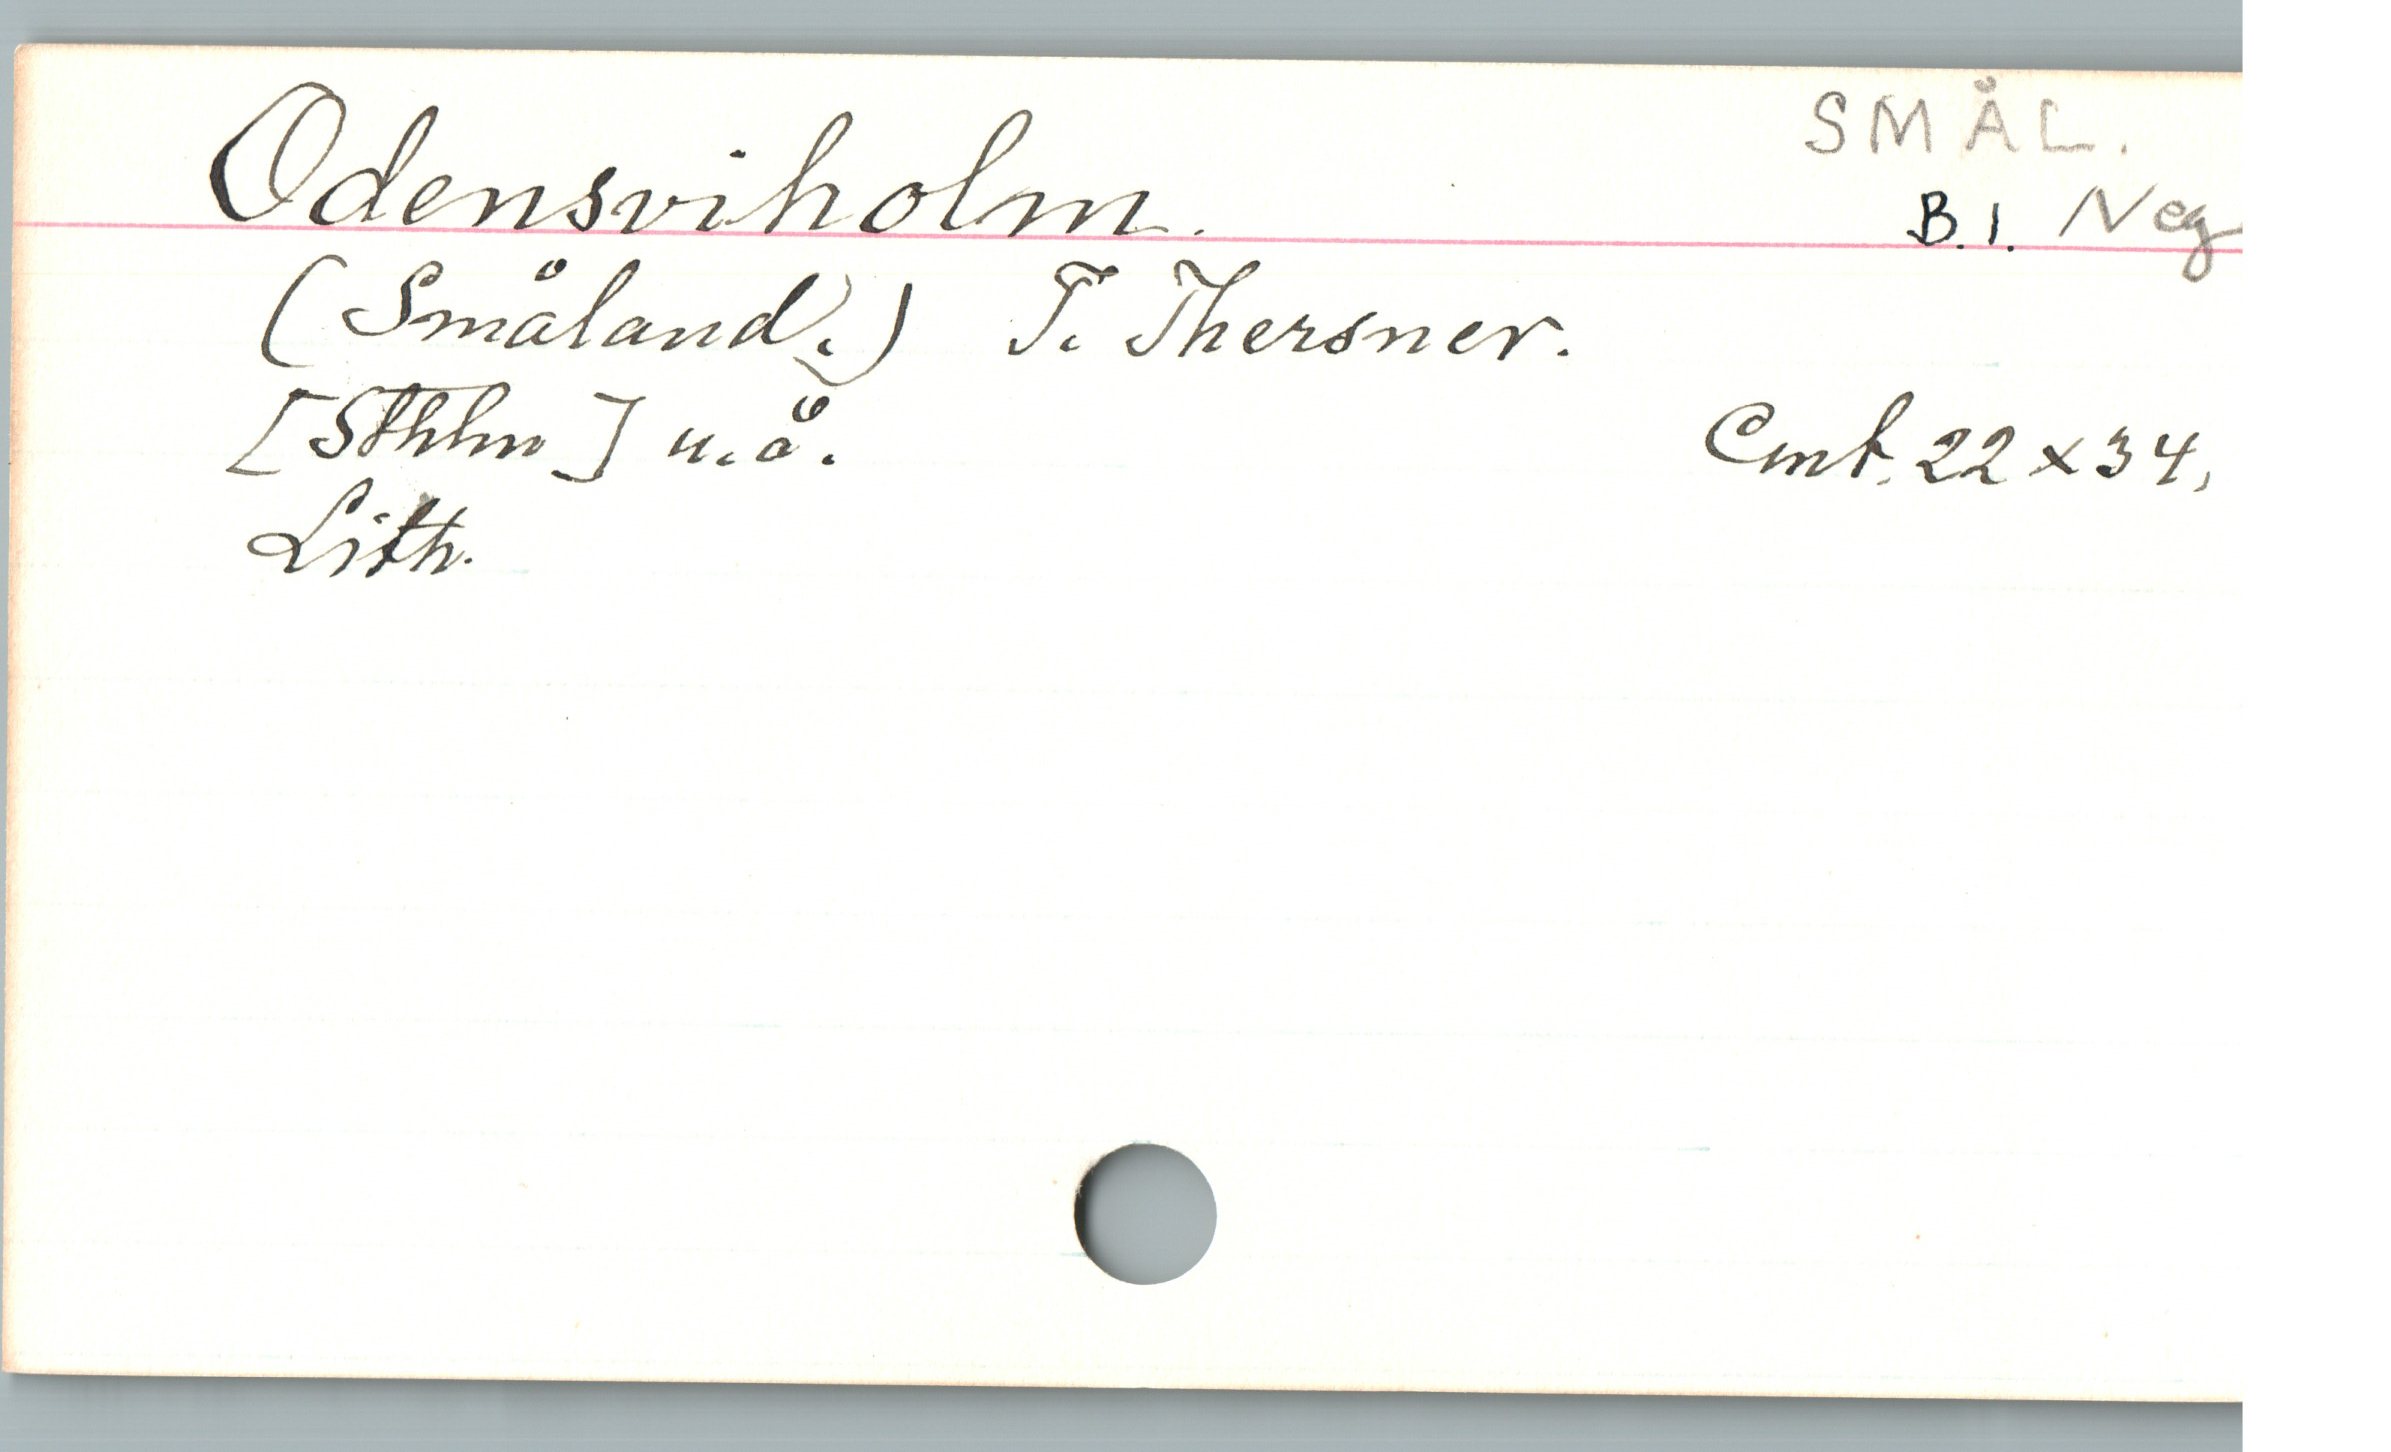 SMÅL.
Odensviholm. B.1. Neg
(Småland.) T. Thersner.
[Sthlm] u.å. Cmt. 22 x 34,
Lith.